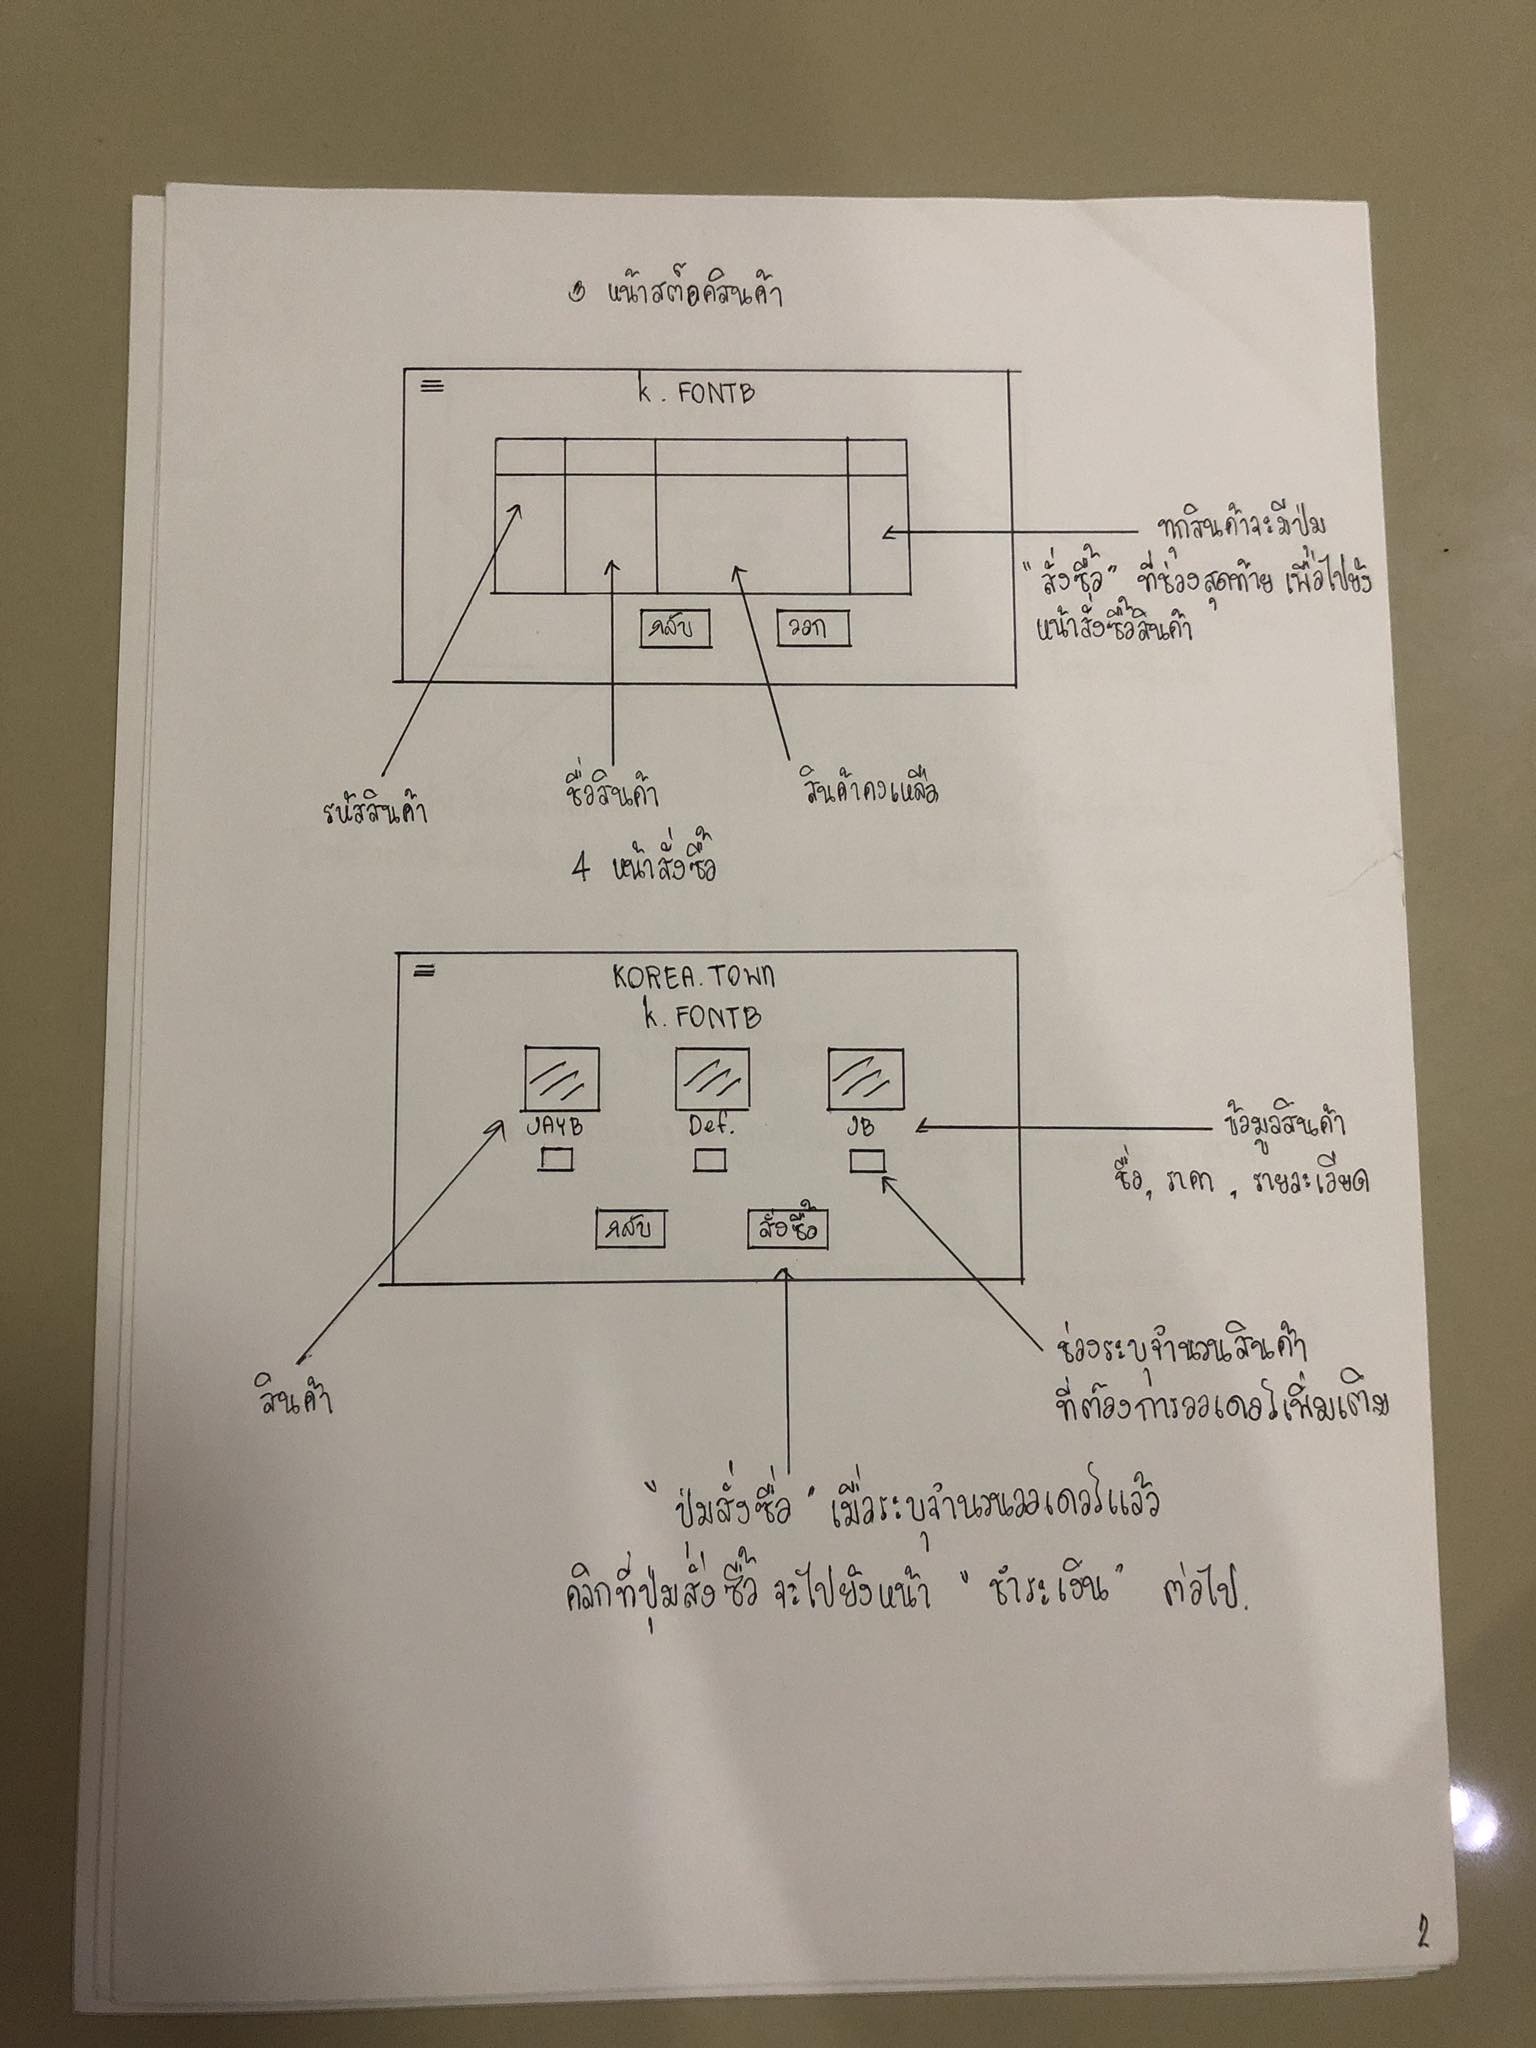 3 หน้าสต๊อคสินค้า
k. FONTB
ทุกสินค้าจะมีปุ่ม
"สั่งซื้อ" ที่ช่องสุดท้าย เพื่อไปยัง
หน้าสั่งซื้อสินค้า
กลับ
ออก
รหัสสินค้า
ชื่อสินค้า
สินค้าคงเหลือ
4 หน้าสั่งซื้อ
KOREA.TOWN
k. FONTB
JAYB
Def.
JB
ข้อมูลสินค้า
ชื่อ, ราคา, รายละเอียด
กลับ
สั่งซื้อ
สินค้า
ช่องระบุจำนวนสินค้า
ที่ต้องการออเดอร์เพิ่มเติม
"ปุ่มสั่งซื่อ" เมื่อระบุจำนวนออเดอร์แล้ว
คลิกที่ปุ่มสั่งซื้อ จะไปยังหน้า "ชำระเงิน" ต่อไป.
2